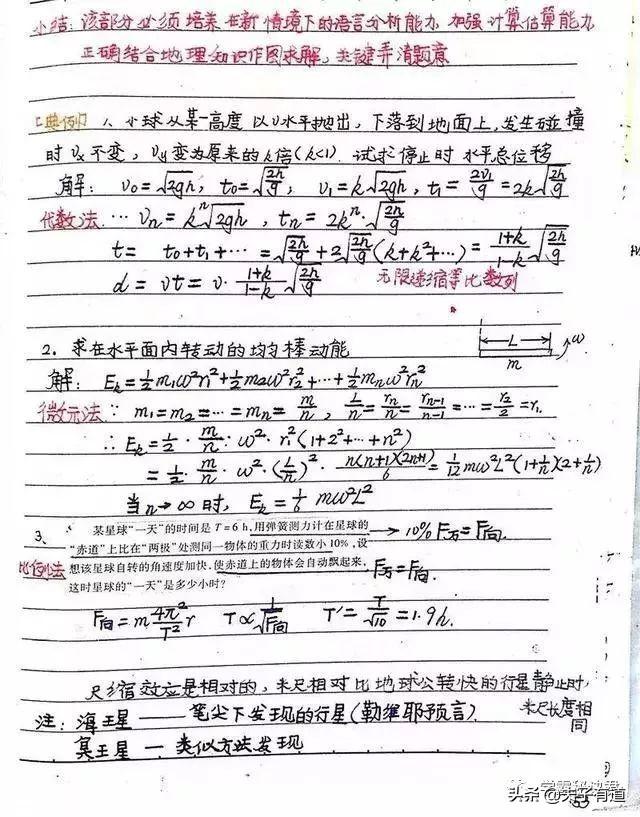 小结: 该部分必须培养在新情境下的语言分析能力, 加强计算估算能力
正确结合地理知识作图求解, 关键弄清题意
[典例] 1、小球从某一高度以v水平抛出, 下落到地面上, 发生碰撞
时 vₓ不变, v_y变为原来的k倍(k<1). 试求停止时水平总位移
解: v₀=√2gh, t₀=√(2h/g), v₁=k√2gh, t₁=2v₁/g=2k√(2h/g)
代数法 … vₙ=kⁿ√2gh, tₙ=2kⁿ·√(2h/g)
t= t₀+t₁+⋯=√(2h/g)+2√(2h/g)(k+k²+⋯)=(1+k)/(1-k)√(2h/g)
d=vt=v·(1+k)/(1-k)√(2h/g) 无限递缩等比数列
2. 求在水平面内转动的均匀棒动能
L
ω
m
解: Eₖ=½m₁ω²r₁²+½m₂ω²r₂²+⋯+½mₙω²rₙ²
微元法 ∵ m₁=m₂=⋯=mₙ=m/n, L/n=rₙ/n=rₙ₋₁/(n-1)=⋯=r₂/2=r₁.
∴ Eₖ=½·m/n·ω²·r₁²(1+2²+⋯+n²)
=½·m/n·ω²·(L/n)²·n(n+1)(2n+1)/6=1/12 mω²L²(1+1/n)(2+1/n)
当n→∞时, Eₖ=1/6 mω²L²
3、 某星球“一天”的时间是 T=6 h,用弹簧测力计在星球的
“赤道”上比在“两极”处测同一物体的重力时读数小 10%,设 → 10%F万=F向.
比例法 想该星球自转的角速度加快,使赤道上的物体会自动飘起来, F万=F向.
这时星球的“一天”是多少小时?
F向=m 4π²/T² r T∝1/√F向 T'=T/√10=1.9h.
尺缩效应是相对的, 米尺相对比地球公转快的行星静止时,
米尺长度相同
注: 海王星 —— 笔尖下发现的行星(勒维耶预言).
冥王星 — 类似方法发现
头条@夫子有道
53